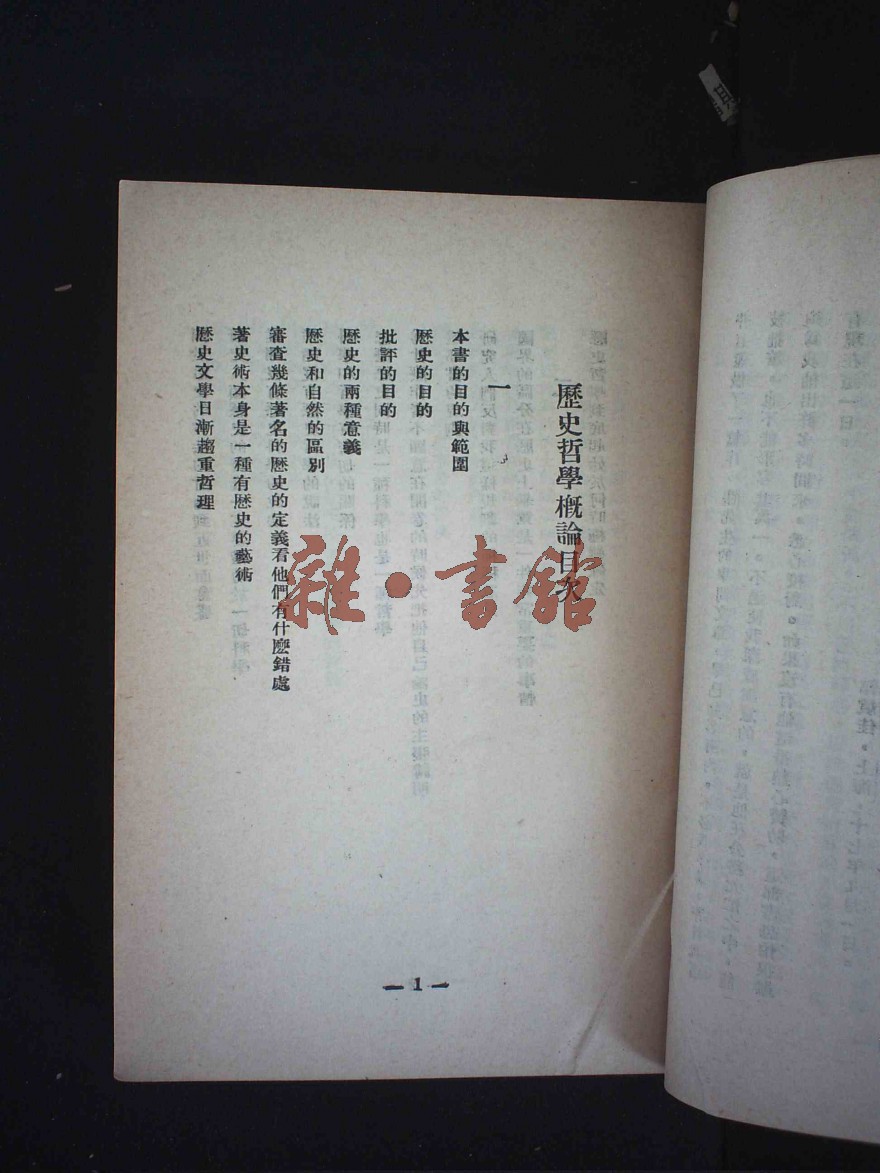 歷史哲學概論目次
一
本書的目的與範圍
歷史的目的
批評的目的
歷史的兩種意義
歷史和自然的區別
審查幾條著名的歷史的定義看他們有什麽錯處
著史術本身是一種有歷史的藝術
歷史文學日漸趨重哲理
— 1 —
雜·書館